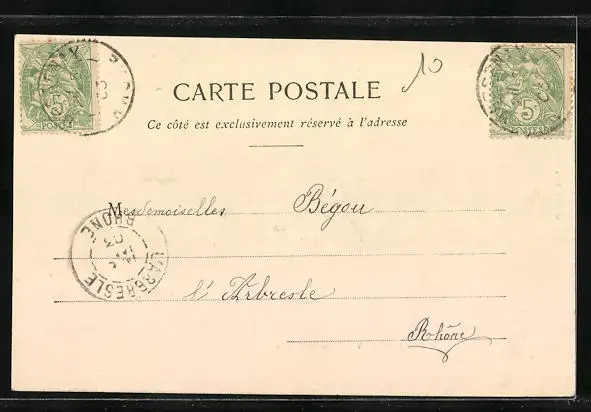 10
CARTE POSTALE
Ce côté est exclusivement réservé à l'adresse
Mesdemoiselles Bégou
l'Arbresle
Rhône
5c
POSTES
5c
POSTES
L'ARBRESLE
RHÔNE
03